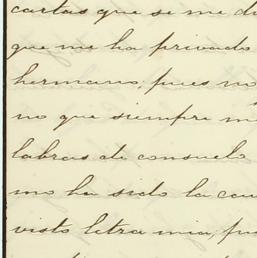 cartas que se me di
que me ha privado
hermano, pues no
no que siempre m
labras de consuelo
mo ha sido la cau
visto letra mia, pu